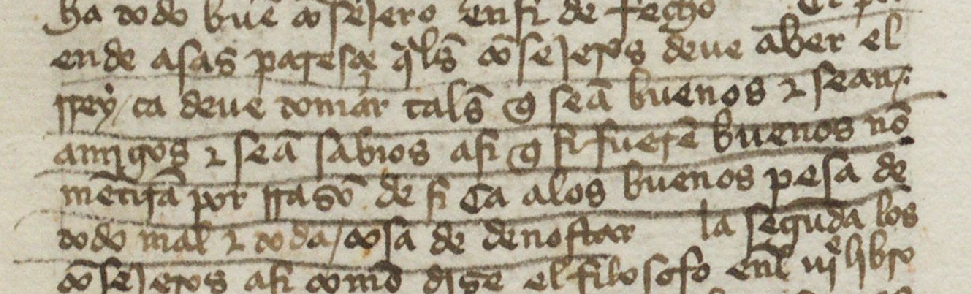 ha todo buẽ cõsejero en si de fecho
ende asas paresçe q̃les cõsejeros deve aver el
rrey / ca deve tomar tales q̃ seã buenos ⁊ sean
amigos ⁊ seã sabios asi q̃ si fuerẽ buenos nõ
mẽtirã por rrazõ de si Ca alos buenos pesa de
todo mal ⁊ toda / cosa de denostar la segũda los
cõsejeros asi como dize el filosofo enl iijº libro